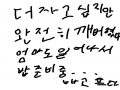 더 자고 싶지만
완전히 깨버렸다
엄마도 일어나서
밥 준비를